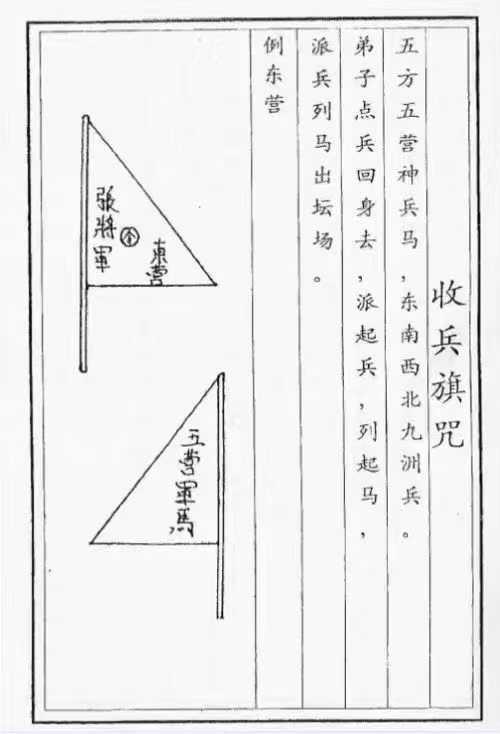 收兵旗咒
五方五营神兵马，东南西北九洲兵。
弟子点兵回身去，派起兵，列起马，
派兵列马出坛场。
例东营
張將軍
東营
五营軍馬